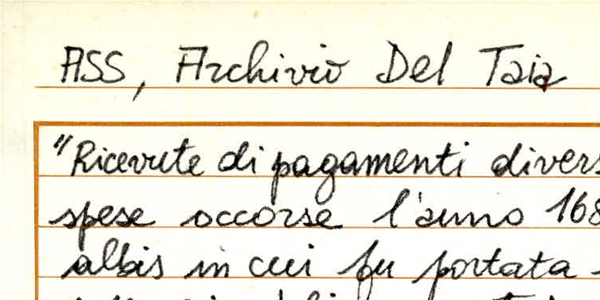 ASS, Archivio Del Taia
"Ricevute di pagamenti divers
spese occorse l'anno 168
albis in cui fu portata